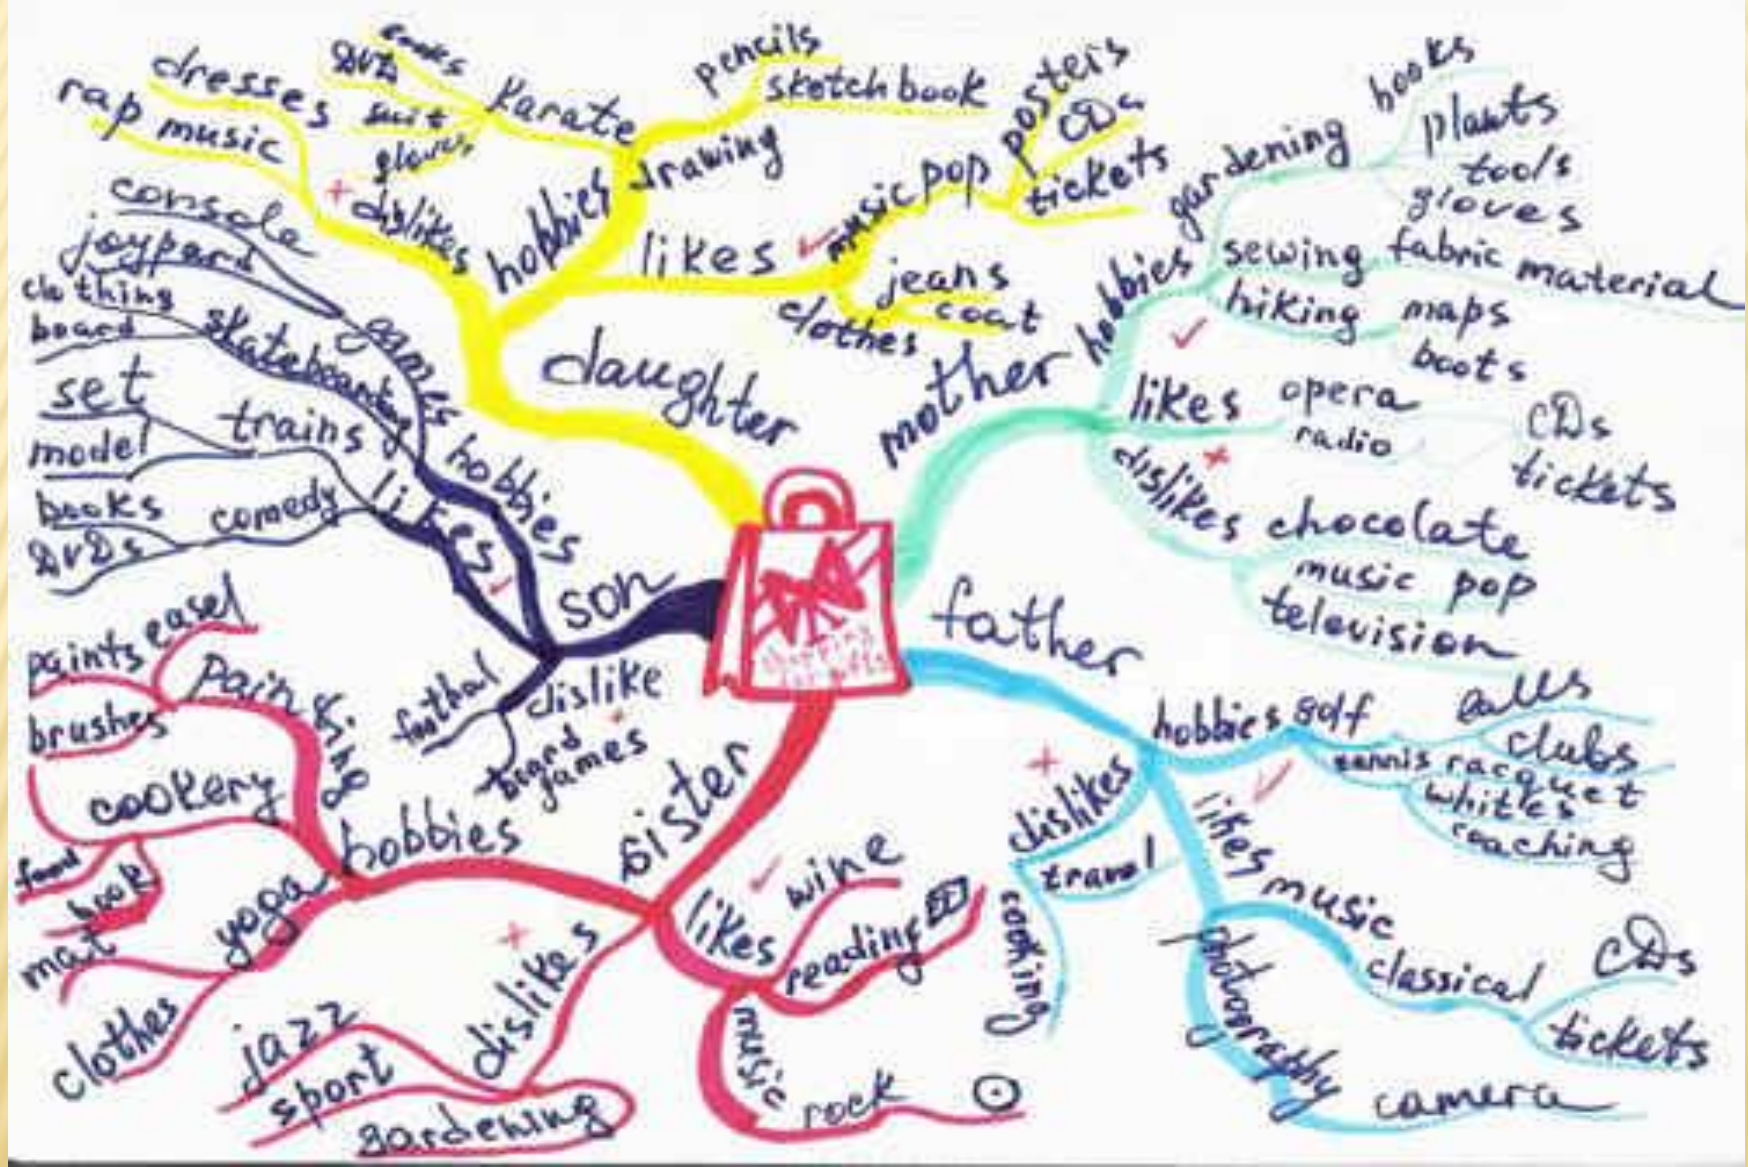 daughter
dislikes
dresses
rap music
hobbies
karate
books
DVD
suit
gloves
drawing
pencils
sketch book
likes
music pop
posters
CDs
tickets
clothes
jeans
coat
mother
hobbies
gardening
books
plants
tools
gloves
sewing
fabric material
hiking
maps
boots
likes
opera
radio
CDs
tickets
dislikes
chocolate
music pop
television
father
hobbies
golf
balls
clubs
tennis racquet
whites
coaching
likes
music
classical
CDs
tickets
photography
camera
dislikes
travel
cooking
sister
likes
wine
reading
music
rock
dislikes
jazz
sport
gardening
hobbies
painting
paints
easel
brushes
cookery
food
book
yoga
mat
clothes
son
hobbies
games
console
joypard
skateboarding
clothing
board
likes
trains
set
model
comedy
books
DVDs
dislike
board
games